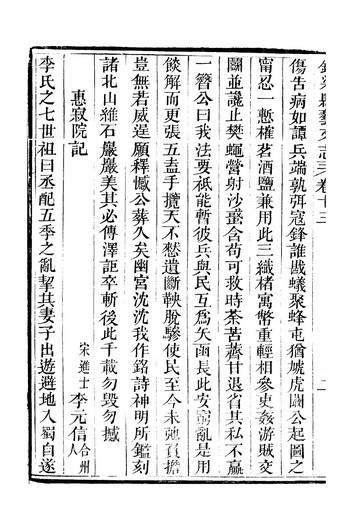 傷吿病如譚兵端孰弭寇鋒誰戡蟻聚蜂屯猶虓虎鬬公起圖之
甯忍一慙榷茗酒鹽兼用此三纖楮寓幣重輕相參吏姦游賊交
鬬並讒止樊蠅營射沙蠆含苟可救時荼苦薺甘退省其私不贏
一簪公曰我法要祇能暫彼兵與民互爲矢函長此安窮亂是用
餤解而更張五盍手攬天不憖遺斷鞅脫驂使民至今未弛負擔
豈無若威遑願釋憾公葬久矣幽宮沈沈我作銘詩神明所鑑刻
諸北山維石巖巖美其必傳澤詎卒斬後此千載勿毀勿撼
惠寂院記
宋進士李元信合州人
李氏之七世祖曰丞配五季之亂挈其妻子出遊避地入蜀自遂